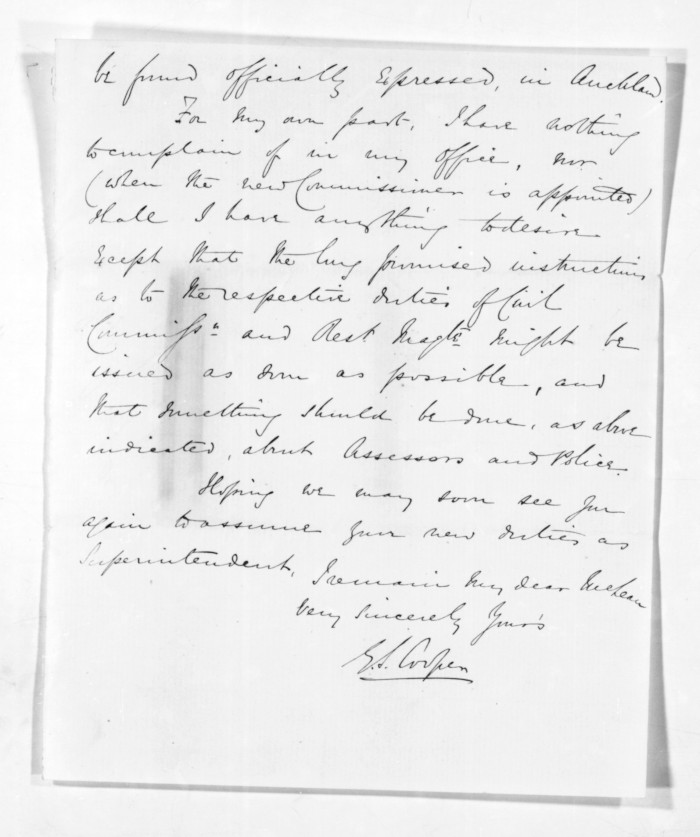 be found officially expressed, in Auckland.
For my own part, I have nothing
to complain of in my office, nor
(when the new Commissioner is appointed)
shall I have anything to desire
except that the long promised instructions
as to the respective duties of Civil
Commissn and Rest Magte might be
issued as soon as possible, and
that something should be done, as above
indicated, about Assessors and Police.
Hoping we may soon see you
again to assume your new duties as
Superintendent, I remain My dear McLean
Very Sincerely Yours
G.S. Cooper